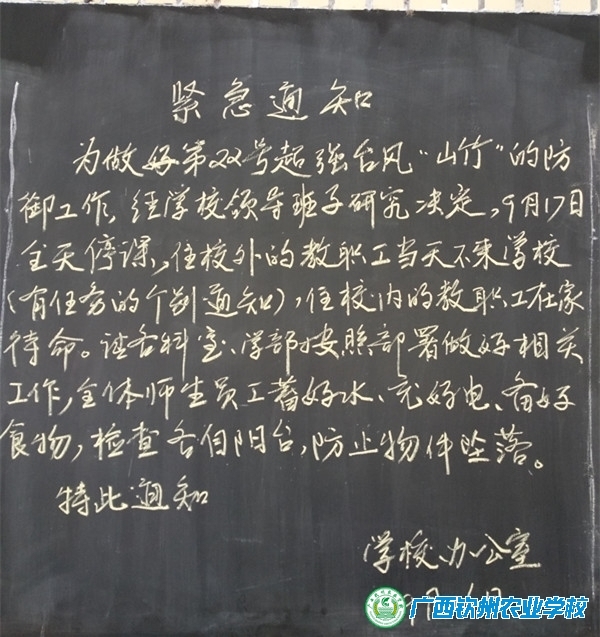 紧急通知
为做好第22号超强台风“山竹”的防
御工作,经学校领导班子研究决定,9月17日
全天停课,住校外的教职工当天不来学校
(有任务的个别通知),住校内的教职工在家
待命。请各科室、学部按照部署做好相关
工作,全体师生员工蓄好水、充好电、备好
食物,检查各自阳台,防止物件坠落。
特此通知
学校办公室
9月
广西钦州农业学校